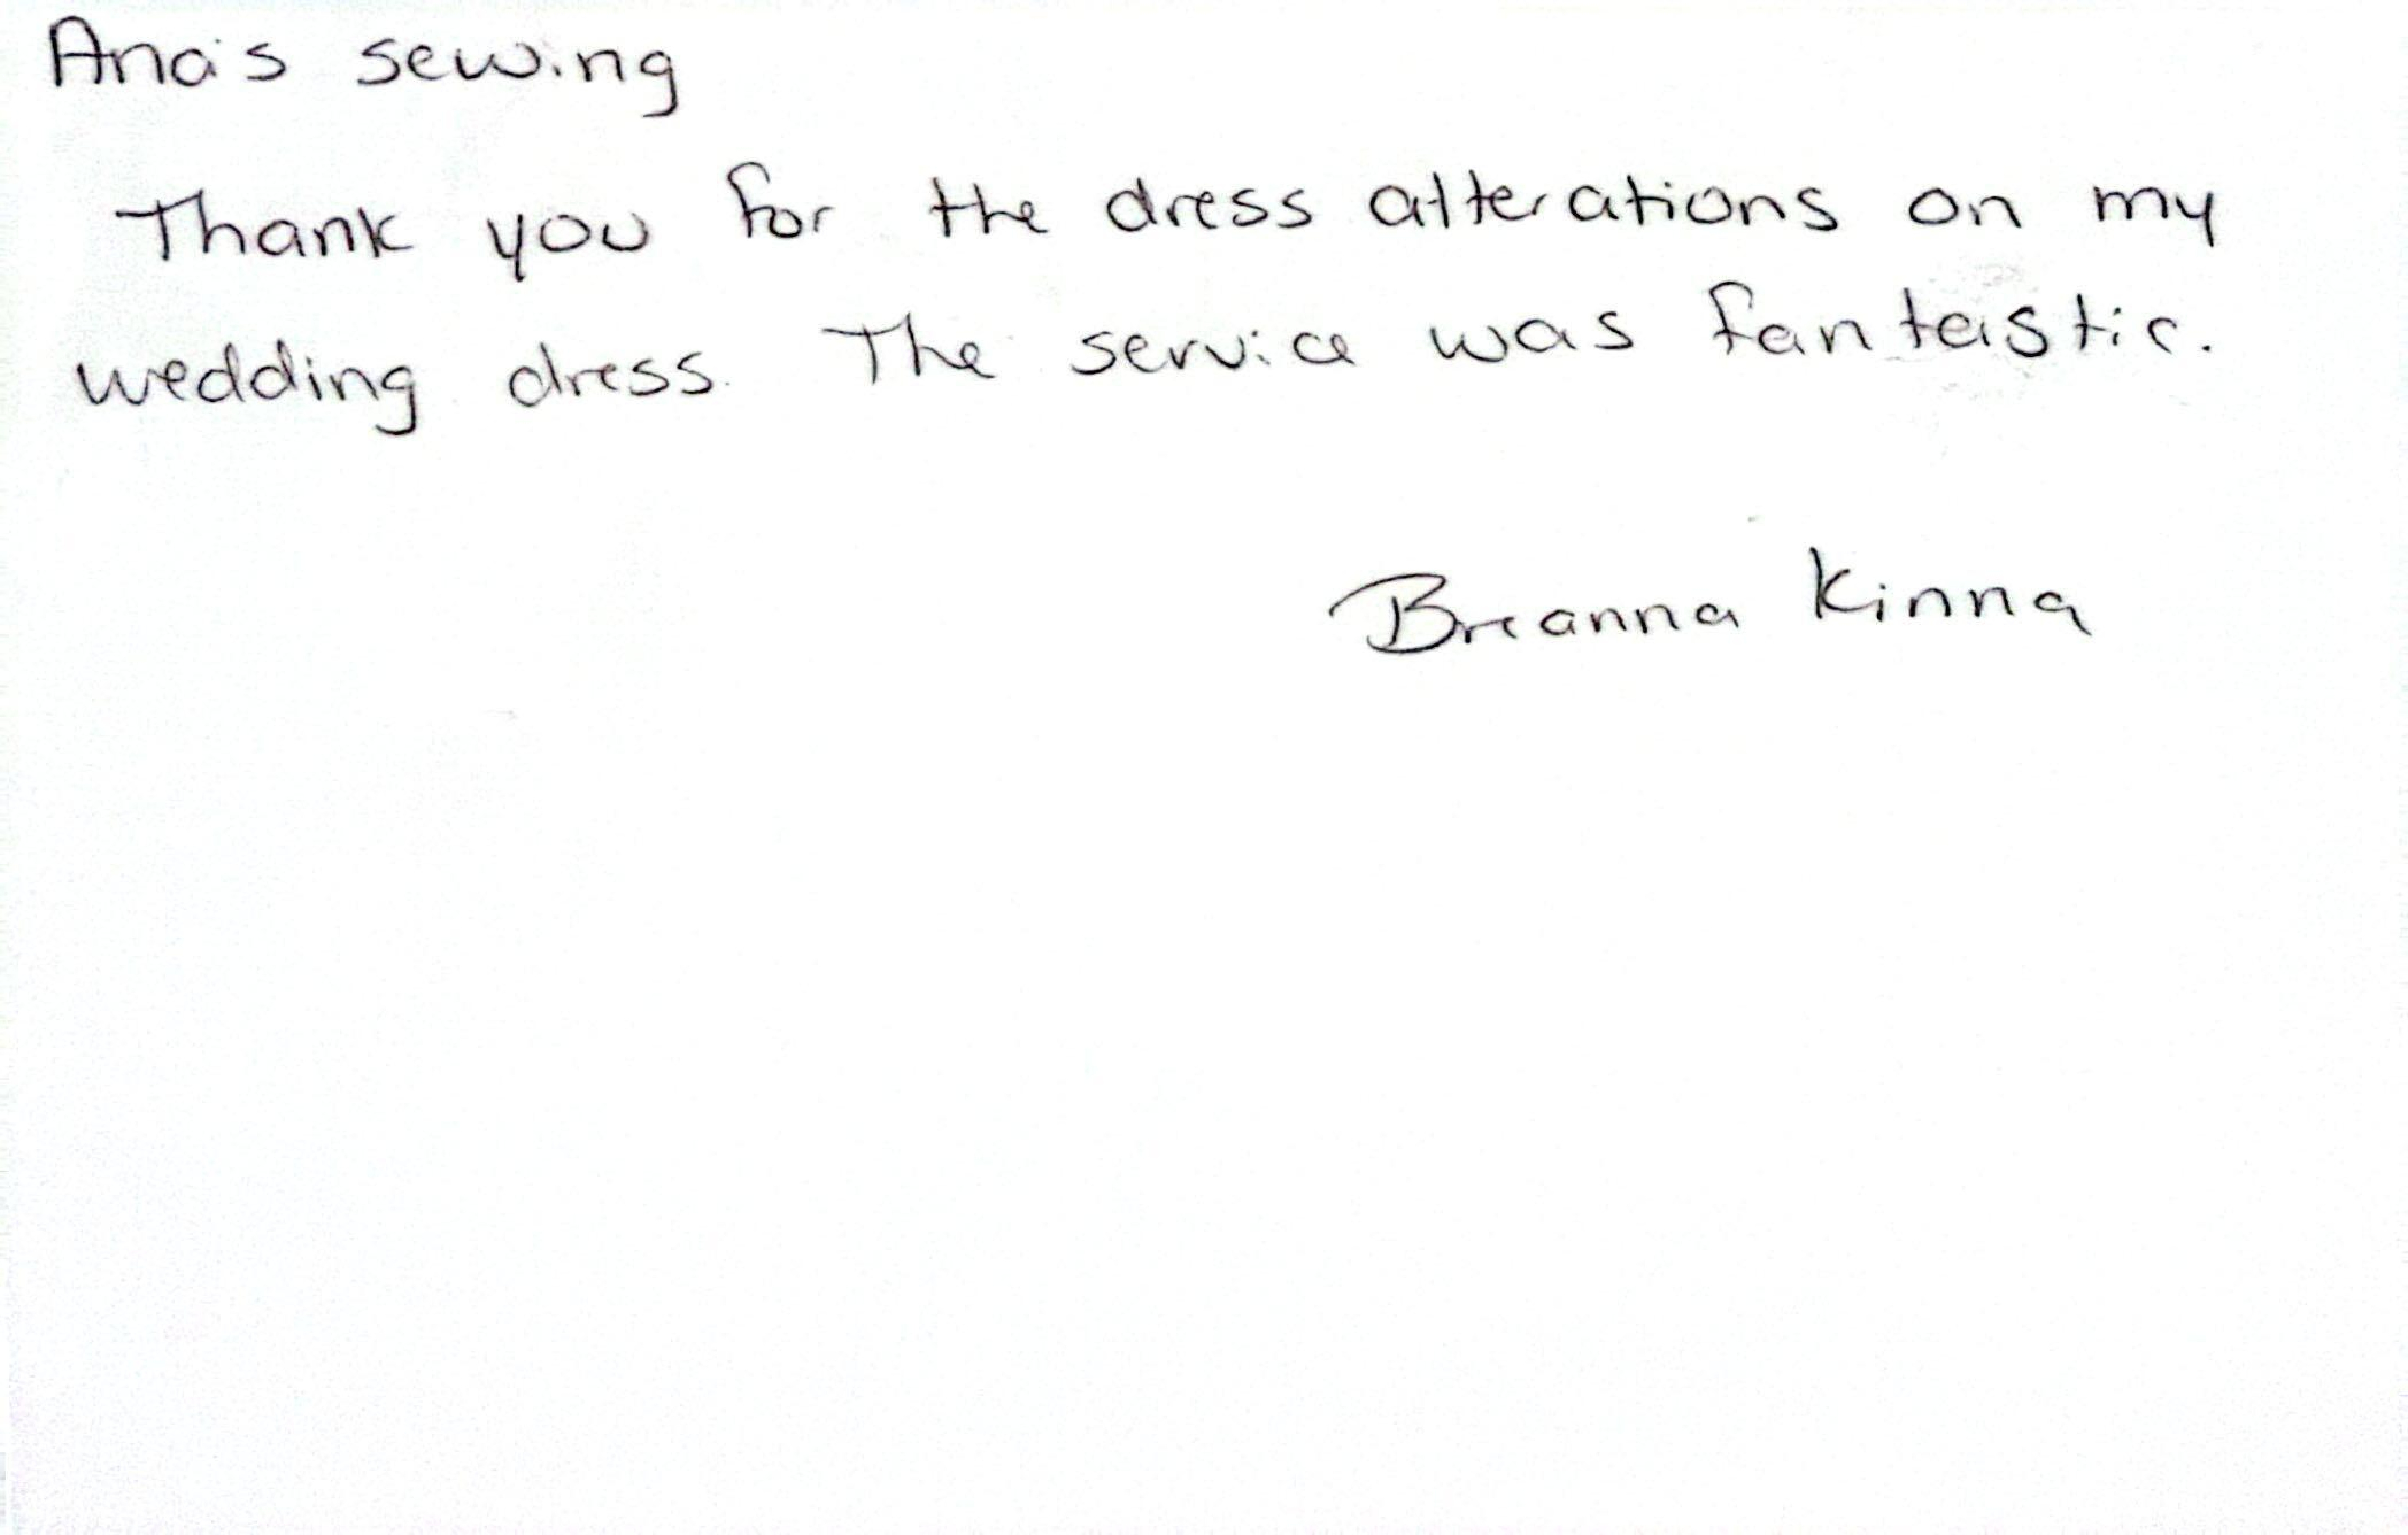 Ana's sewing
Thank you for the dress alterations on my
wedding dress. The service was fantastic.
Breanna Kinna